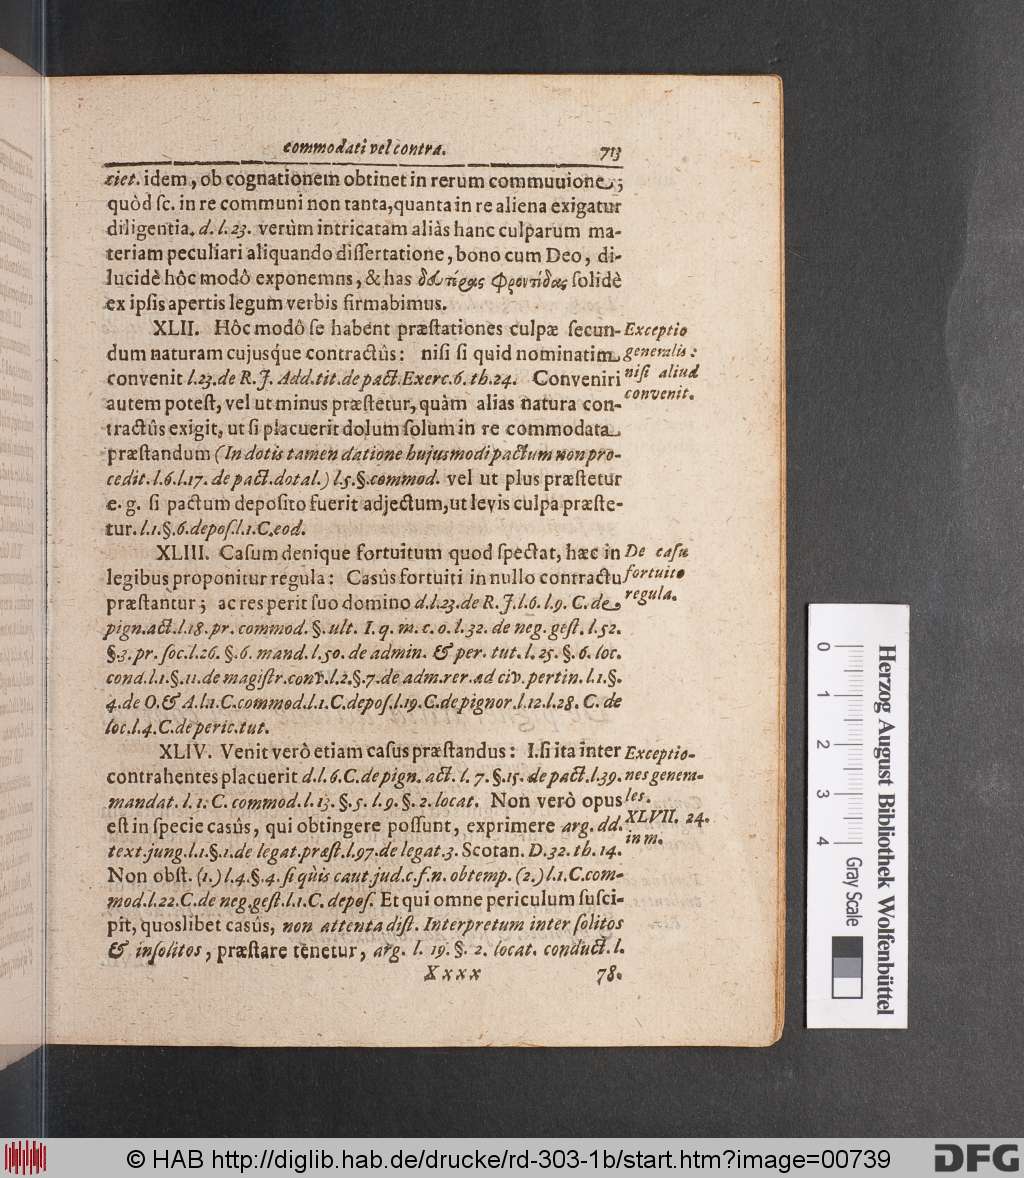 commodati vel contra. 713
ciet. idem, ob cognationem obtinet in rerum commuuione;
quòd ſc. in re communi non tanta, quanta in re aliena exigatur
diligentia. d. l. 23. verùm intricatam aliàs hanc culparum ma-
teriam peculiari aliquando diſſertatione, bono cum Deo, di-
lucidè hôc modô exponemns, & has δευτέρας φροντίδας ſolidè
ex ipſis apertis legum verbis firmabimus.
XLII. Hôc modô ſe habent præſtationes culpæ ſecun-
dum naturam cujusq́ue contractûs: niſi ſi quid nominatim
convenit l. 23. de R. J. Add. tit. de pact. Exerc. 6. th. 24. Conveniri
autem poteſt, vel ut minus præſtetur, quàm alias natura con-
tractûs exigit, ut ſi placuerit dolum ſolum in re commodata
præſtandum (In dotis tamen datione hujusmodi pactum non pro-
cedit. l. 6. l. 17. de pact. dotal.) l. 5. §. commod. vel ut plus præſtetur
e. g. ſi pactum depoſito fuerit adjectum, ut levis culpa præſte-
tur. l. 1. §. 6. depoſ. l. 1. C. eod.
Exceptio
generalis:
niſi aliud
convenit.
XLIII. Caſum denique fortuitum quod ſpectat, hæc in
legibus proponitur regula: Casûs fortuiti in nullo contractu
præſtantur; ac res perit ſuo domino d. l. 23. de R. J. l. 6. l. 9. C. de
pign. act. l. 18. pr. commod. §. ult. I. q. m. c. o. l. 32. de neg. geſt. l. 52.
§. 3. pr. ſoc. l. 26. §. 6. mand. l. 50. de admin. & per. tut. l. 25. §. 6. loc.
cond. l. 1. §. 11. de magiſtr. conv. l. 2. §. 7. de adm. rer. ad civ. pertin. l. 1. §.
4. de O. & A. l. 1. C. commod. l. 1. C. depoſ. l. 19. C. de pignor. l. 12. l. 28. C. de
loc. l. 4. C. de peric. tut.
De caſu
fortuito
regula.
XLIV. Venit verò etiam caſus præſtandus: I. ſi ita inter
contrahentes placuerit d. l. 6. C. de pign. act. l. 7. §. 15. de pact. l. 39.
mandat. l. 1. C. commod. l. 13. §. 5. l. 9. §. 2. locat. Non verò opus
eſt in ſpecie casûs, qui obtingere poſſunt, exprimere arg. dd.
text. jung. l. 1. §. 1. de legat. præſt. l. 97. de legat. 3. Scotan. D. 32. th. 14.
Non obſt. (1.) l. 4. §. 4. ſi quis caut. jud. c. f. n. obtemp. (2.) l. 1. C. com-
mod. l. 22. C. de neg. geſt. l. 1. C. depoſ. Et qui omne periculum ſuſci-
pit, quoslibet casûs, non attenta diſt. Interpretum inter ſolitos
& inſolitos, præſtare tenetur, arg. l. 19. §. 2. locat. conduct. l.
Exceptio-
nes genera-
les.
XLVII. 24.
in m.
Xxxx 78.
0 1 2 3 4 Gray Scale
Herzog August Bibliothek Wolfenbüttel
© HAB http://diglib.hab.de/drucke/rd-303-1b/start.htm?image=00739
DFG